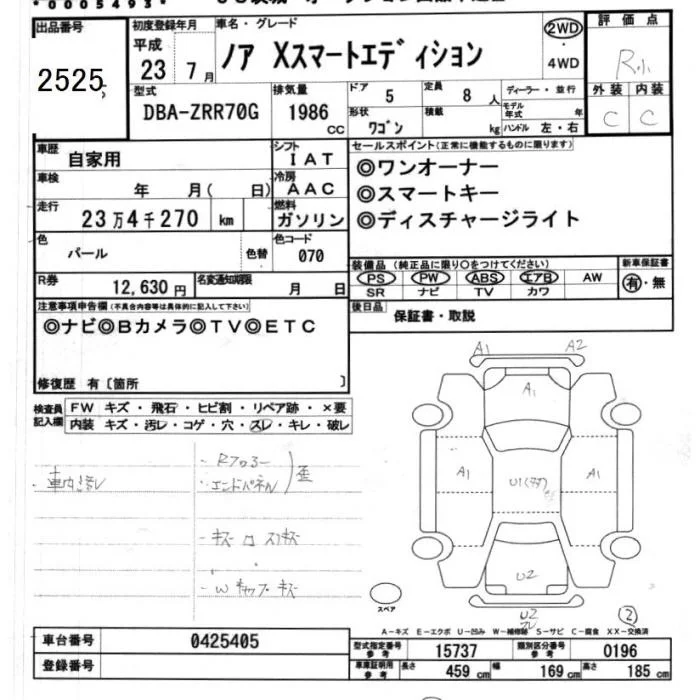 *0005493*
出品番号
2525
初度登録年月
平成
23 7月
車名・グレード
ノア Xスマートエディション
2WD
・
4WD
評価点
R小
外装 内装
C C
型式
DBA-ZRR70G
排気量
1986
cc
ドア
5
定員
8 人
形状
ワゴン
積載
kg
ディーラー・並行
モデル年式 年
ハンドル 左・右
車歴
自家用
シフト
IAT
車検
年 月( 日)
冷房
AAC
走行
23万4千270 km
燃料
ガソリン
色
パール
色替
色コード
070
R券
12,630円
名変通知期限
月 日
セールスポイント(正常に機能するものに限ります)
◎ワンオーナー
◎スマートキー
◎ディスチャージライト
装備品(純正品に限り○をつけてください)
PS PW ABS エアB AW
SR ナビ TV カワ
新車保証書
有・無
後日品
保証書・取説
注意事項申告欄(不具合内容等は具体的に記入して下さい)
◎ナビ◎Bカメラ◎TV◎ETC
修復歴 有〔箇所 〕
検査員記入欄
FW キズ・飛石・ヒビ割・リペア跡・×要
内装 キズ・汚レ・コゲ・穴・スレ・キレ・破レ
車内汚レ
・Rフロアー
・エンドパネル
歪
・Wキャップ キズ
A1 A2
A1
A1
U1
A1
U2
U2
スペア
②
A-キズ E-エクボ U-凹み W-補修跡 S-サビ C-腐食 XX-交換済
車台番号
0425405
登録番号
型式指定番号
参考
15737
類別区分番号
参考
0196
車庫証明用
参考
長さ 459 cm 幅 169 cm 高さ 185 cm